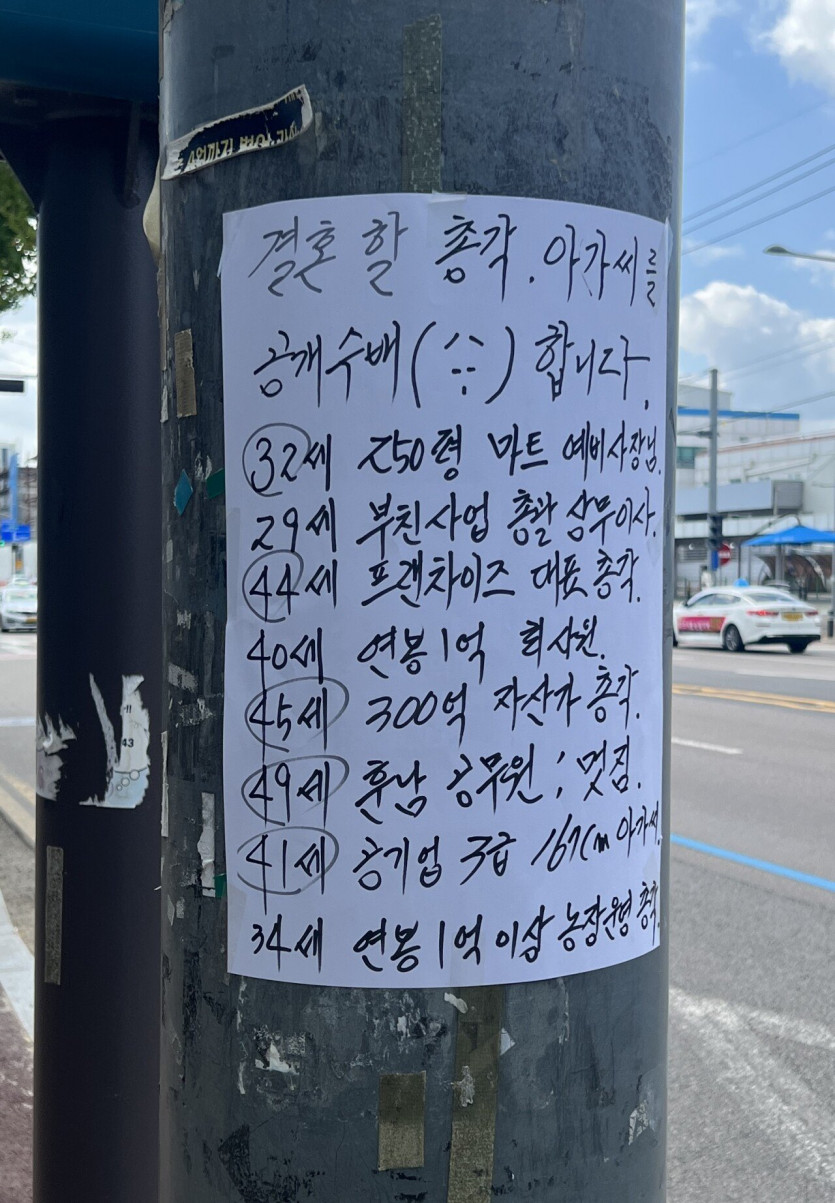 결혼 할 총각. 아가씨를
공개수배(^^;;) 합니다.
32세 250평 마트 예비사장님.
29세 부친사업 총괄 상무이사.
44세 프랜차이즈 대표 총각.
40세 연봉 1억 회사원.
45세 300억 자산가 총각.
49세 훈남 공무원; 멋짐.
41세 공기업 3급 167cm 아가씨.
34세 연봉 1억 이상 농장운영 총각.
43